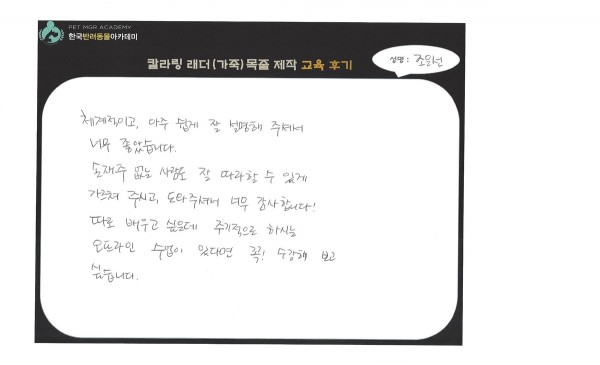 PET MGR ACADEMY
한국반려동물아카데미
칼라링 래더(가죽)목줄 제작 교육 후기
성명 : 조윤선
체계적이고, 아주 쉽게 잘 설명해 주셔서
너무 좋았습니다.
손재주 없는 사람도 잘 따라할 수 있게
가르쳐 주시고, 도와주셔서 너무 감사합니다!
따로 배우고 싶은데 주기적으로 하시는
오프라인 수업이 있다면 꼭! 수강해 보고
싶습니다.